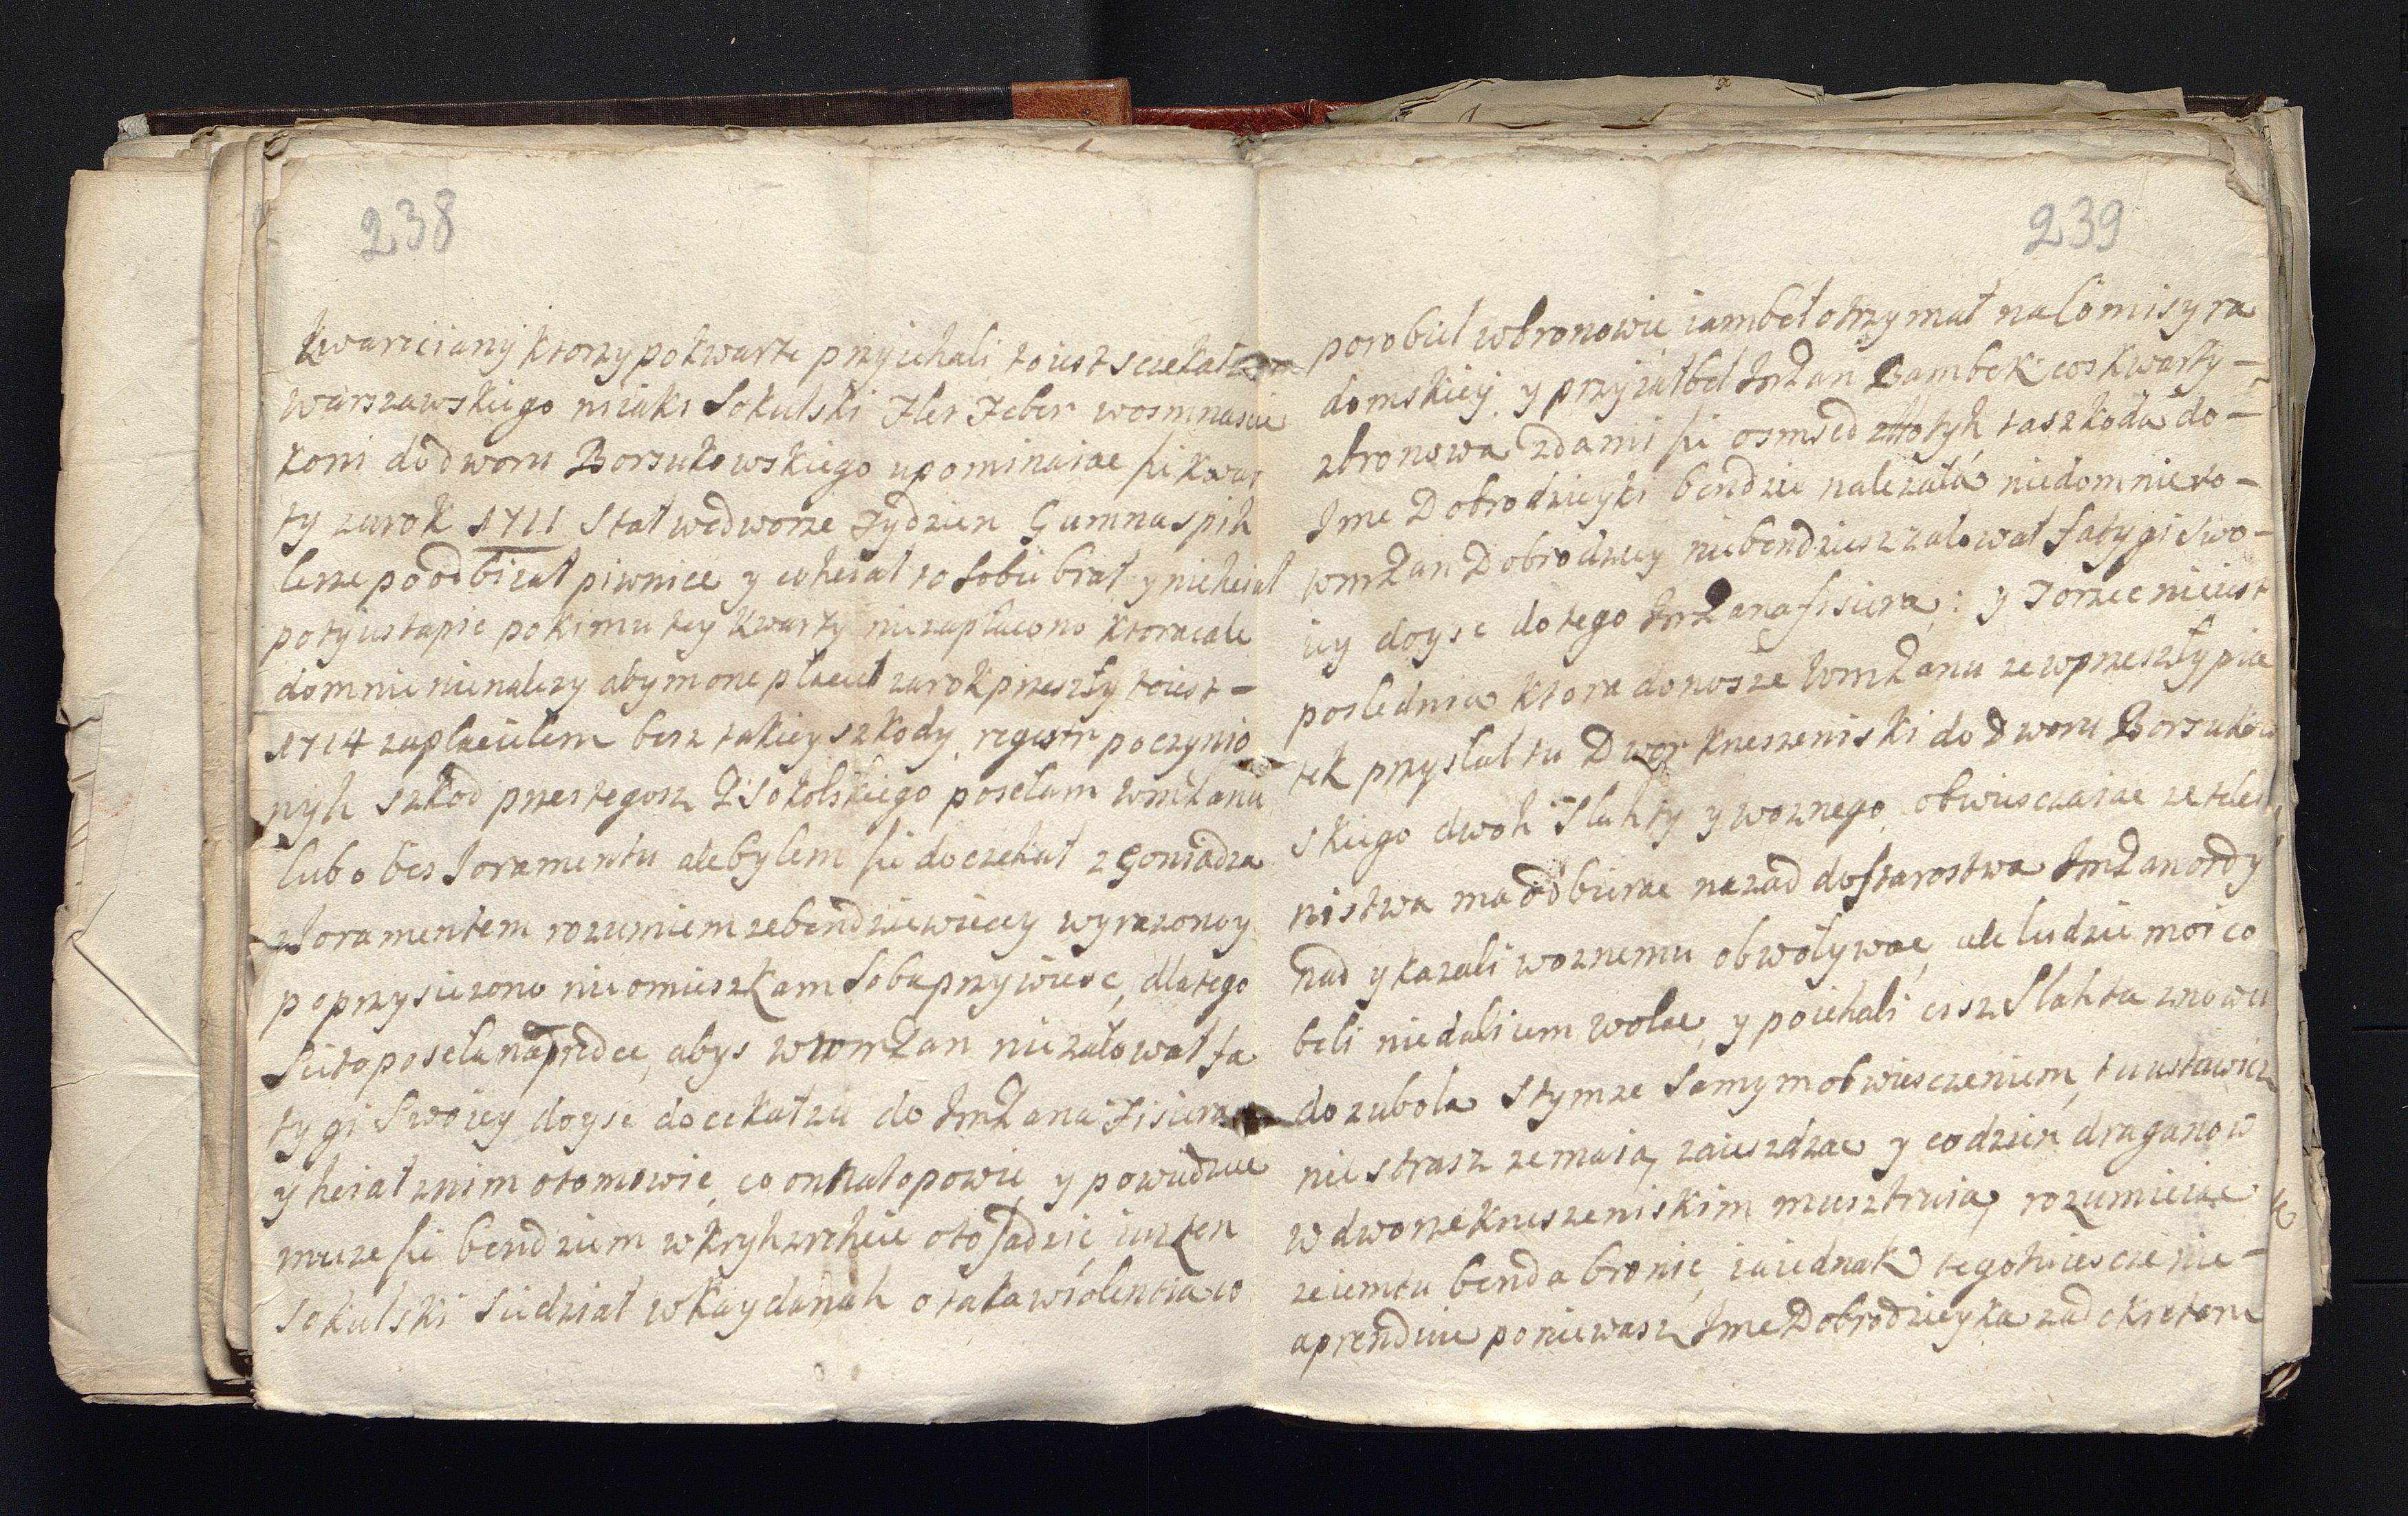 238
kwarciany ktorzy po kwarte przyiehali to iest sczekatzem
warszawskiego nieiaki Sokulski Jler Jeber wosmnascie
koni do dworu Borsukowskiego upominaiac sie kwar
ty za rok 1711 stał we dworze tydzien Gumna spih
lerze poodbiiał piwnice y co hciał to sobie brał y niehciał
poty ustapic poki mu tey kwarty nie zapłacono ktora cale
do mnie nie nalezy abym one płacieł za rok przeszły to iest –
1714 zapłacielem besz takiey szkody, regestr poczynio
nyh szkod przes tegosz P Sokolskiego poselam wmPanu
lubo bes Joramentu ale bylem sie doczekał z Goniadza
z Joramentem rozumiem ze bendzie wiecey wyrazonoy
poprzysiezono nie omieszkam soba przywiesc, dlatego
sie to posela naprędce, abys wwmPan nie załował fa
tygi swoiey doysc do cekatzu do JmPana Fisiera
y hciał znim o tom mowic, co on na to powie y powiedziec
muze sie bendziem w kryhzrehcie o to sadzic iusz ten
Sokulski siedział w kaydanah o taka wiolentia co
239
porobieł w bronowie iam beł otrzymał na Comisy ra
domskiey y przyiał beł JmPan Bambek cos kwarty –
z bronowa zda mi sie osmsed złłotyh ta szkoda do –
Jme Dobrodzieyki bendzie nalezała nie do mnie to –
wmPan Dobrodziey nie bendziesz załował fatygi swo –
iey doysc do tego JmPana fisiera; y Torzec nieiest
poslednia ktora donosze WmPanu ze w przeszły pia
tek przysłał tu Dwor kneszeniski do Dworu Borsukow
skiego dwoh Slahty y woznego, obwiesczaiac ze tdes
nistwa ma odbierac nazad do starostwa JmPan ordy
nad y kazali woznemu obwoływac, ale ludzie moi co
beli nie dali iem wołac, y poiehali cisz Slahta znowu
do zubola s tymze samym obwiesczeniem, tu ustawicz
nie strasz ze maia, zaieszdzac y co dzien draganow
w dworze kneszeniskim musztruia, rozumieiac
ze iem tu benda bronic, ia iednak tego tu iescze nie –
aprendiie poniewasz Jme Dobrodzieyka za dekretem